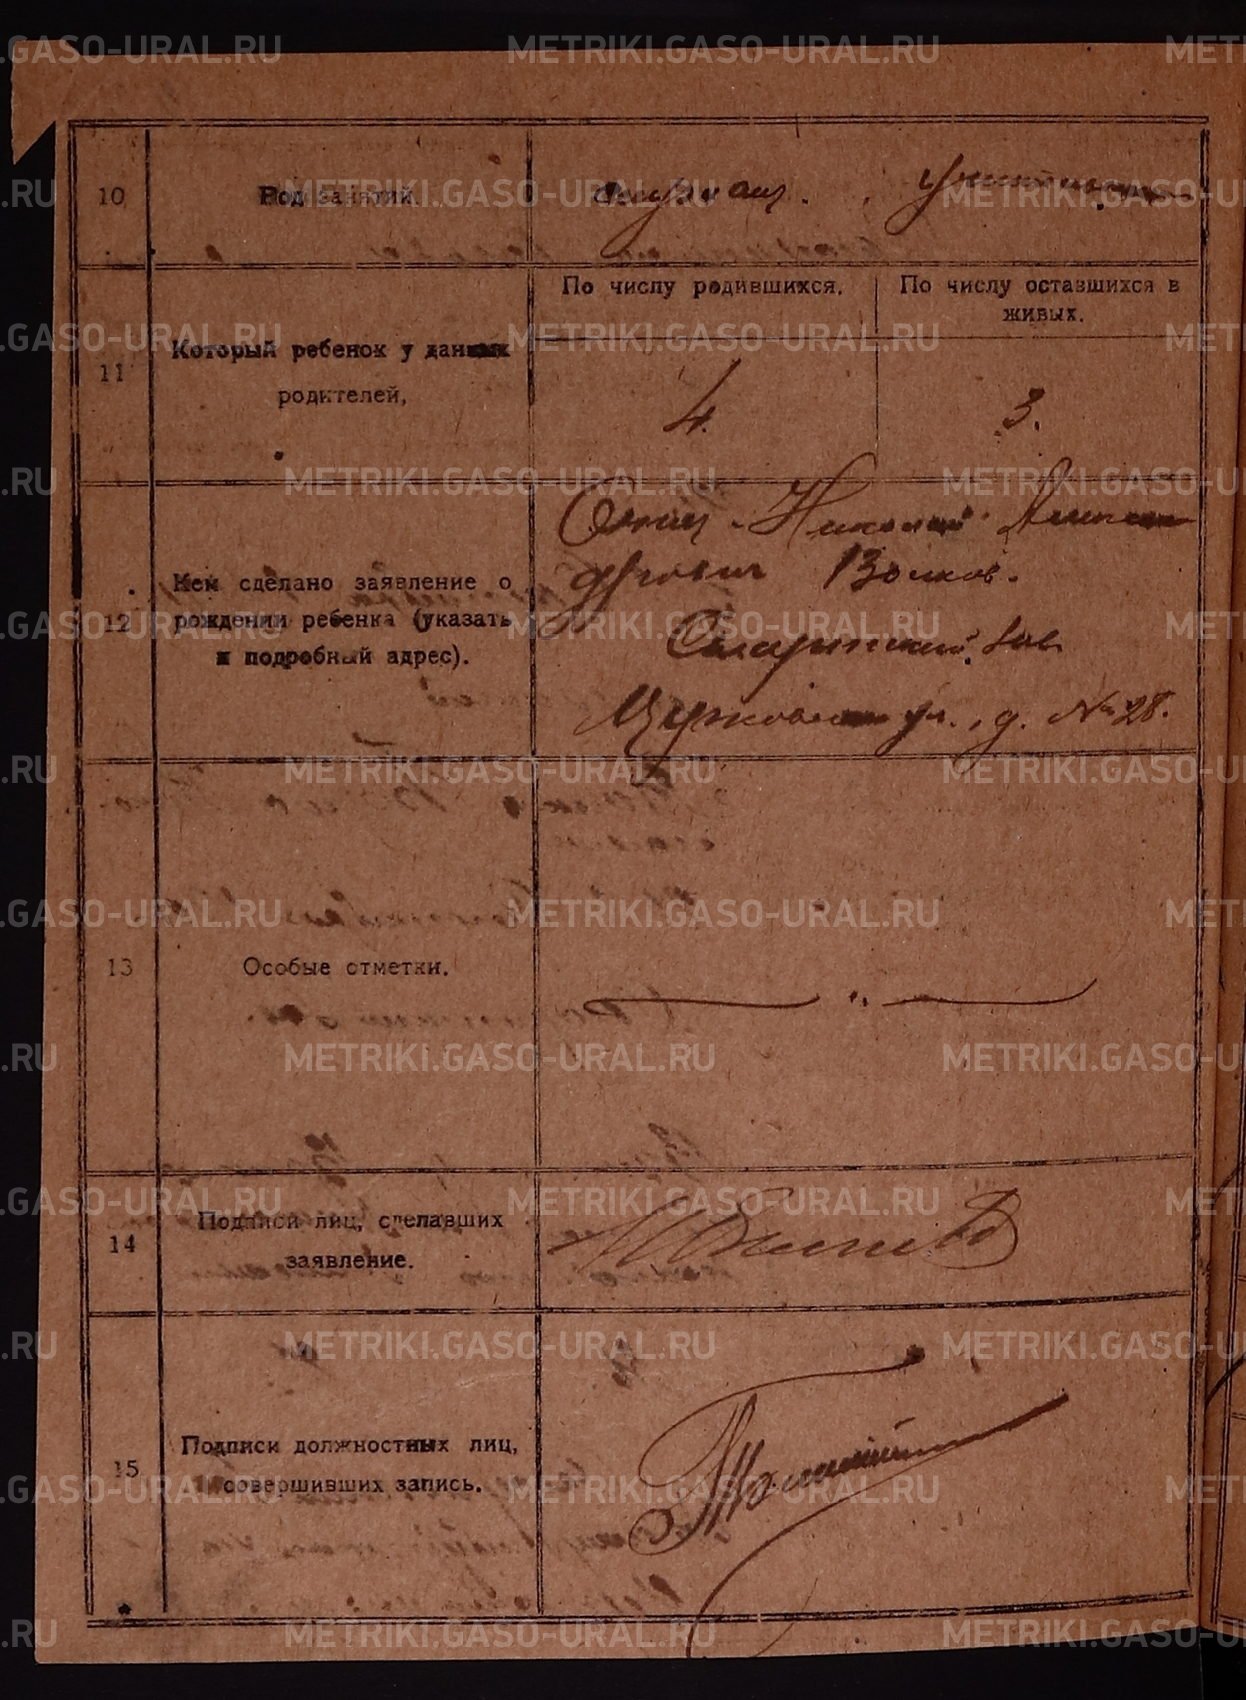 10
Род занятий.
служащ.
11
Который ребенок у данных
родителей,
По числу родившихся.
4.
По числу оставшихся в
живых.
3.
12
Кем сделано заявление о
рождении ребенка (указать
и подробный адрес).
Отец - Николай Алексан
дрович Волков.
Сысертский зав
Церковная ул., д. № 28.
13
Особые отметки.
14
Подписи лиц, сделавших
заявление.
15
Подписи должностных лиц,
совершивших запись.
METRIKI.GASO-URAL.RU